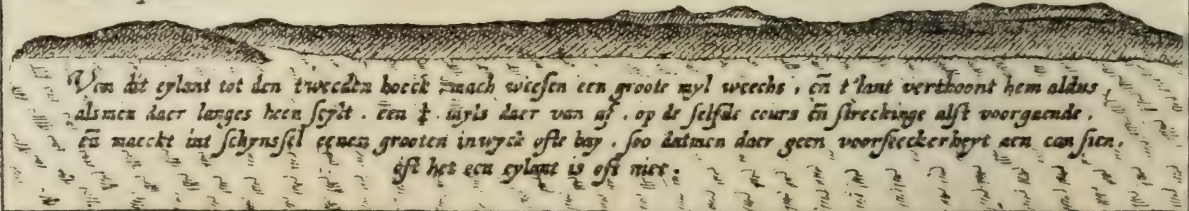 Van dit eylant tot den tweeden hoeck mach weesen een groote myl weechs, en̄ t'lant verthoont hem aldus,
alsmen daer langes heen seylt. een ¼. myls daer van af. op de selfde cours en̄ streckinge alst voorgaende.
en̄ maeckt int schynssel eenen grooten inwyck ofte bay, soo datmen daer geen voorseeckerheyt aen can sien.
oft het een eylant is oft niet.